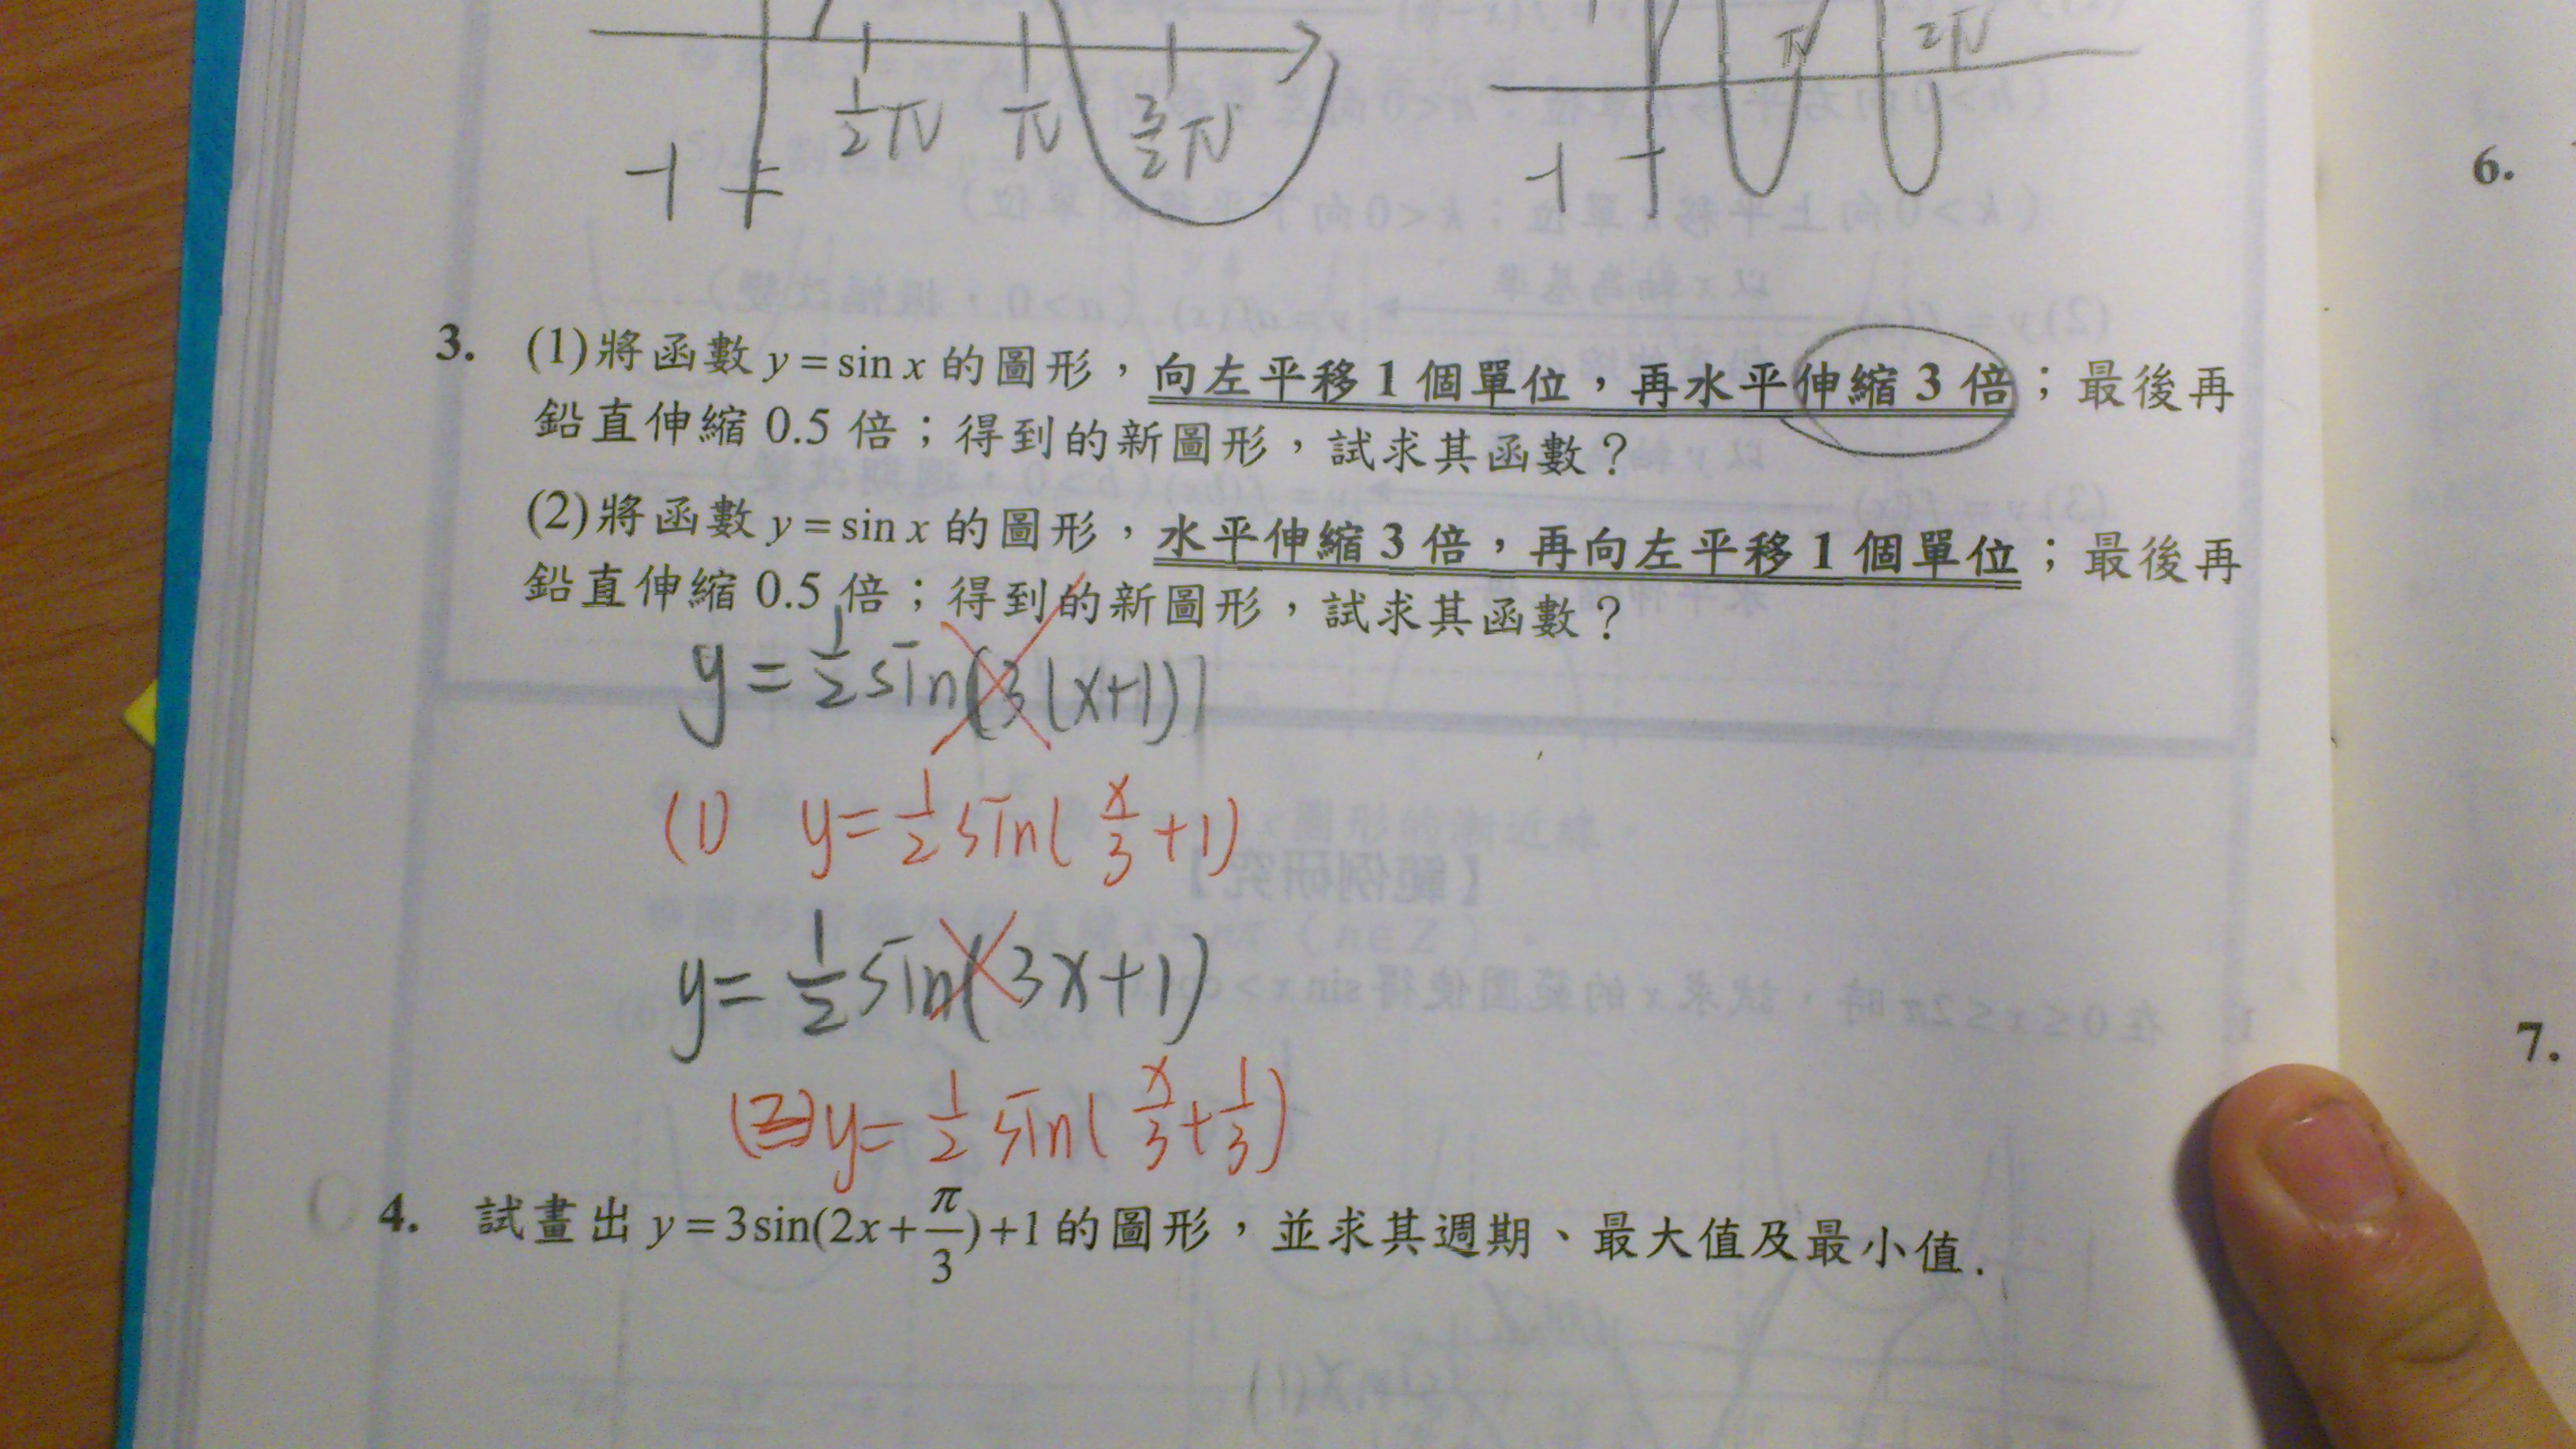 1/2 π π 3/2 π
-1
π 2π
-1
6.
3. (1)將函數 y = sin x 的圖形，向左平移 1 個單位，再水平伸縮 3 倍；最後再
鉛直伸縮 0.5 倍；得到的新圖形，試求其函數？
(2)將函數 y = sin x 的圖形，水平伸縮 3 倍，再向左平移 1 個單位；最後再
鉛直伸縮 0.5 倍；得到的新圖形，試求其函數？
y = 1/2 sin(3(x+1))
(1) y = 1/2 sin( x/3 + 1)
y = 1/2 sin(3x+1)
(2) y = 1/2 sin( x/3 + 1/3 )
7.
4. 試畫出 y = 3sin(2x + π/3) + 1 的圖形，並求其週期、最大值及最小值.